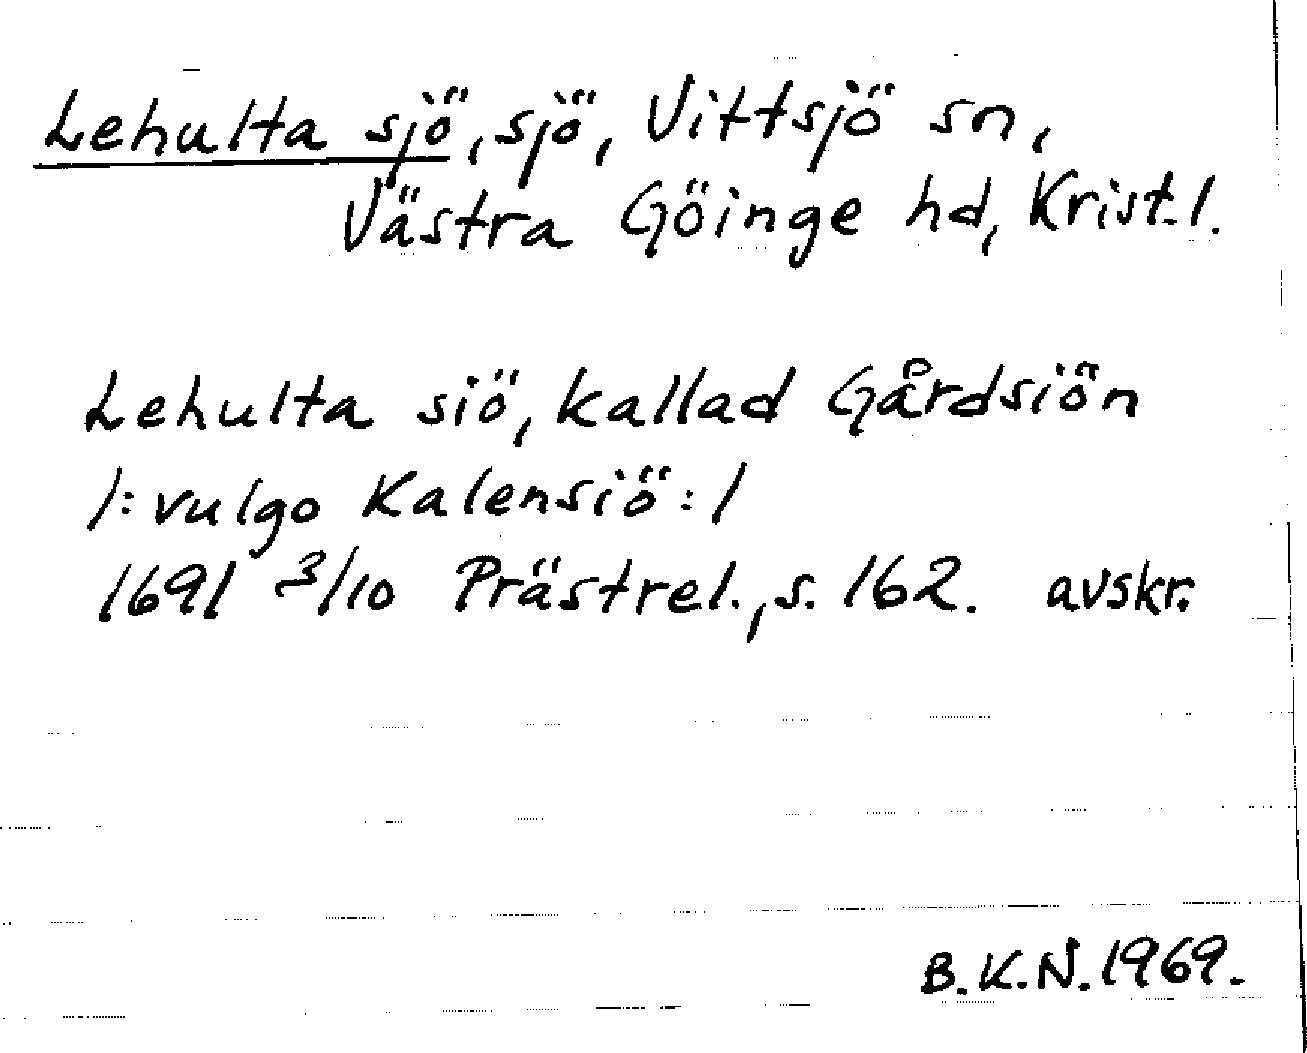 Lehulta sjö, sjö, Vittsjö sn,
Västra Göinge hd, Krist. l.
Lehulta siö, kallad Gårdsiön
/: vulgo Kalensiö :/
1691 3/10 Prästrel., s. 162. avskr.
B.K.N. 1969.